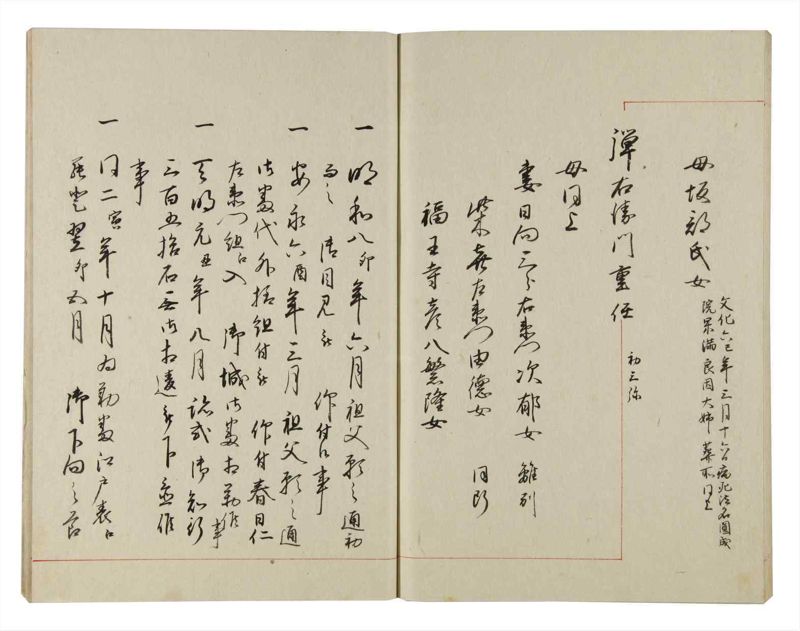 母坂部氏女
文化六巳年三月十六日病死法名圓成
院果満良因大姉 葬所同上
弾右衛門重任 初三弥
母同上
妻日向三郎右衛門次郁女 離別
柴喜左衛門由徳女 同断
福王寺彦八繁隆女
一 明和八卯年六月祖父願之通初
而之 御目見被 仰付候事
一 安永六酉年三月祖父願之通
御番代外様組付被 仰付春日仁
左衛門組ニ入 御城御番相勤候事
一 天明元丑年八月跡式御知行
三百五拾石無御相違被下置候
事
一 同二寅年十月為勤番江戸表ニ
罷登翌卯五月 御下向之節